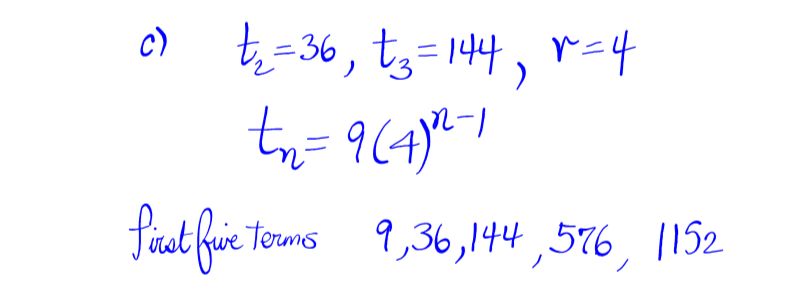 c) t₂=36, t₃=144, r=4
tₙ=9(4)ⁿ⁻¹
first five terms 9,36,144,576, 1152